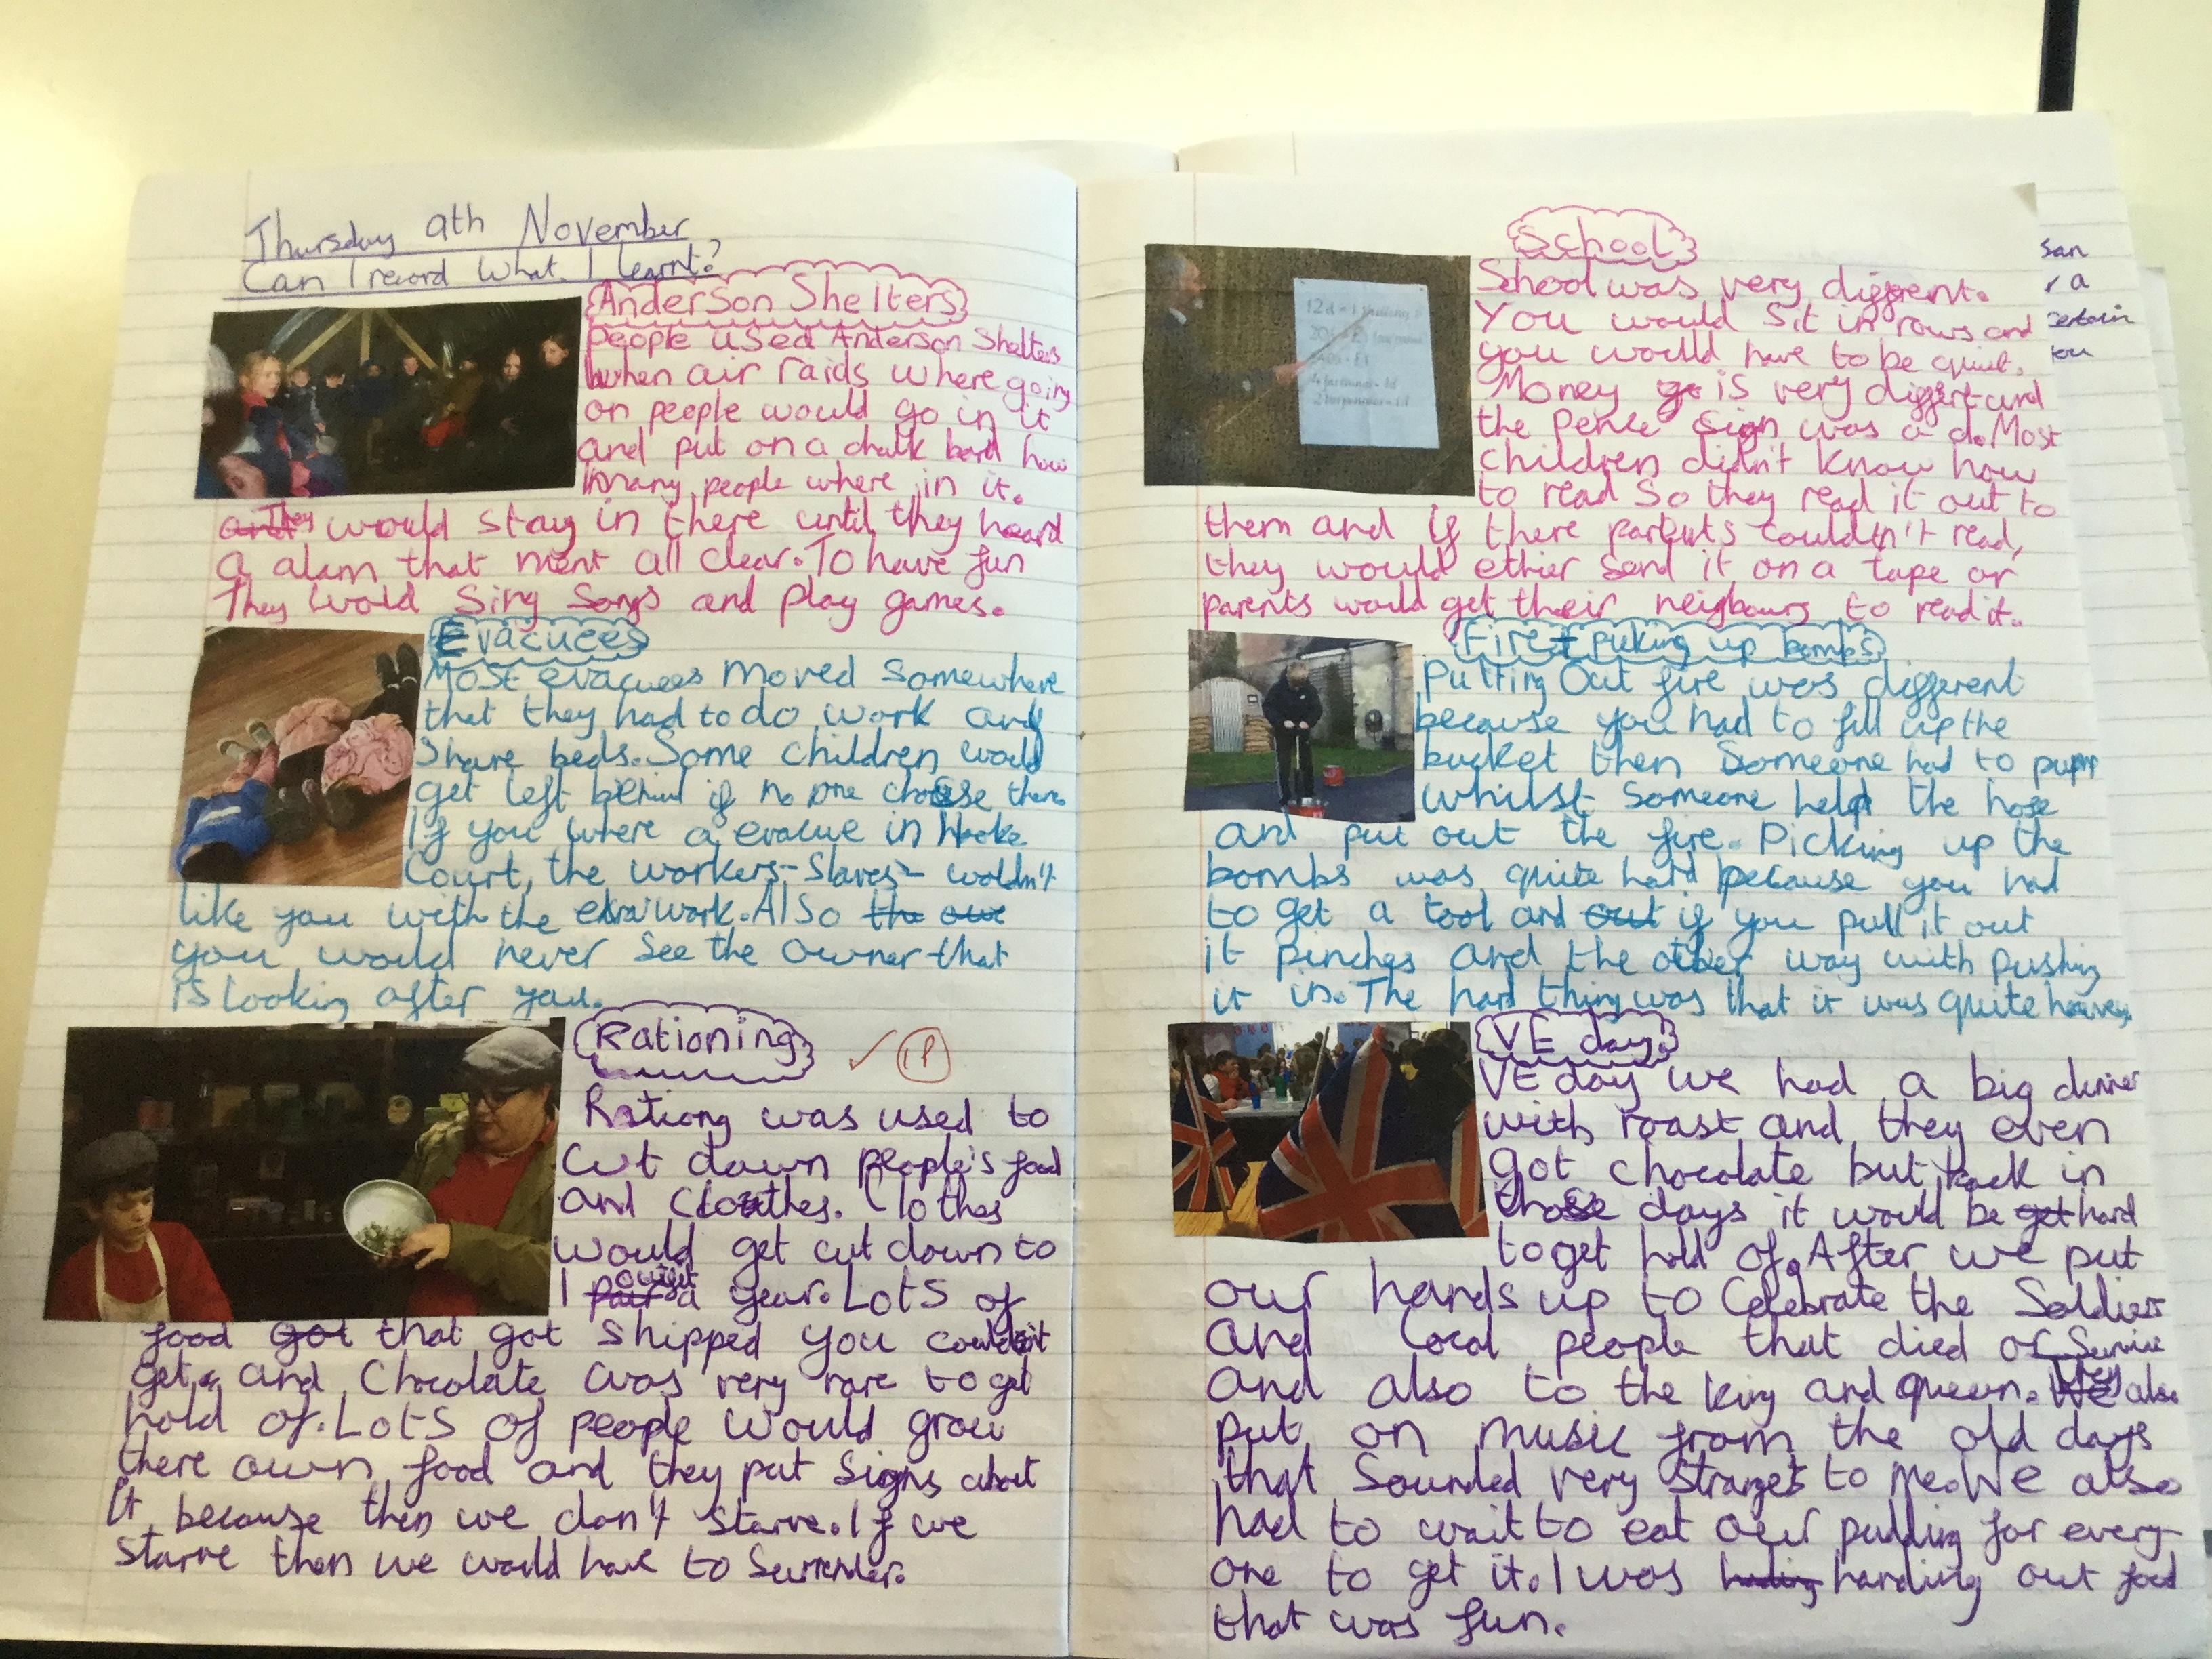 Thursday 9th November
Can I record what I learnt?
Anderson Shelters
People used Anderson Shelters
when air raids where going
on people would go in it
and put on a chalk bord how
many people where in it.
and They would stay in there until they heard
a alam that ment all clear. To have fun
They wold sing songs and play games.
Evacuees
Most evacuees moved somewhere
that they had to do work and
share beds. Some children would
get left behind if no one choose them
If you where a evacue in Hooke
Court, the workers-Slaves- woldn't
like you with the extra work. Also the owe
you would never see the owner that
is looking after you.
Rationing
✓ IP
Rationg was used to
cut down people's food
and clouthes. Clothes
would get cut down to
1 pair outfit a year. Lots of
food got that got shipped you couldn't
get and Chocolate was very rare to get
hold of. Lots of people would grow
there own food and they put signs about
it because then we don't starve. If we
starve then we would have to surrender.
School
School was very different.
You would sit in rows and
you would have to be quiet.
Money is very differt and
the pence sign was a d. Most
children didn't know how
to read so they read it out to
them and if there parents couldn't read,
they would ethier send it on a tape or
parents would get their neigbours to read it.
12d = 1 shilling
Fire + picking up bombs
Putting out fire was different
because you had to fill up the
bucket then someone had to pump
whilst someone held the hose
and put out the fire. Picking up the
bombs was quite hard because you had
to get a tool and out if you pull it out
it pinches and the other way with pushing
it in. The hard thing was that it was quite heavey.
VE day
VE day we had a big dinner
with roast and they even
got chocolate but back in
those days it would be get hard
to get hold of. After we put
our hands up to celebrate the Soldiers
and local people that died or Survive
and also to the king and queen. We They also
put on music from the old days
that sounded very stranget to me. We also
had to wait to eat our pudding for every-
one to get it. I was handing out food
that was fun.
san
a
certain
you